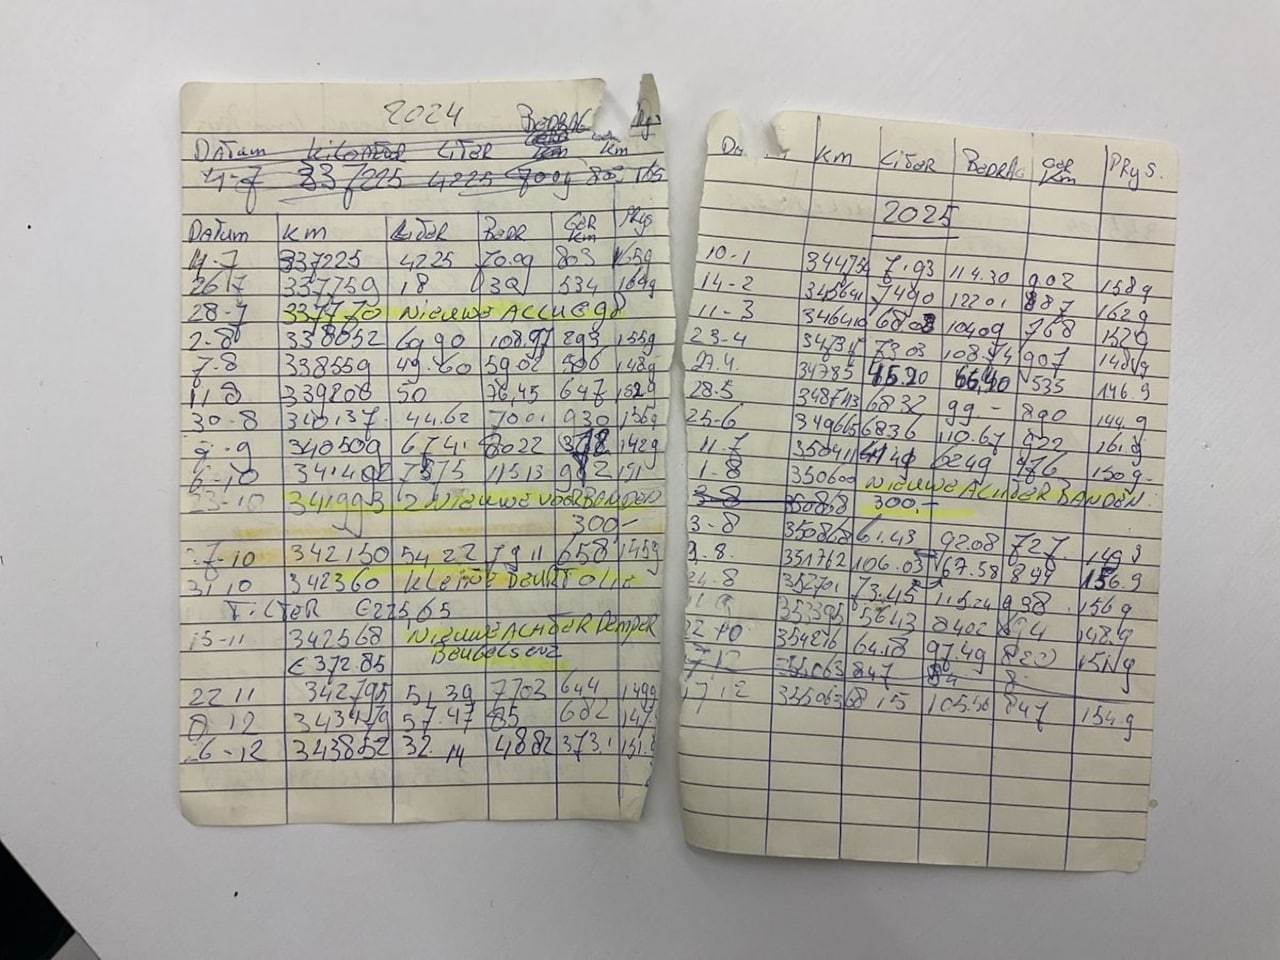 2024 BEDRAG
DATUM KILOMETER LITER km
4-7 337225 4225 7009 803 165
DATUM KM LITER BEDR GER km PRYS
4.7 337225 4225 70.09 803 1659
26 7 337759 18 30 534 1649
28-7 337770 NIEUWE ACCU € 90
2-8 338652 69 90 108.97 893 1559
7-8 338559 49.60 59 02 506 1489
11-8 339206 50 76,45 647 1529
30-8 340137 44.62 7001 930 1559
340509 6741 8022 372 1429
6-10 341402 7575 11513 982 151
23-10 341993 2 NIEUWE VOORBANDEN
300-
27-10 342150 54 22 79 11 658 1459
31 10 342360 KLEINE BEURT OLIE
FILTER €275,65
15-11 342568 NIEUWE ACHTER DEMPER
€ 372.85 BEUGELS enz
22 11 342795 51,39 7702 644 1499
8-12 343479 57.47 85 682 147
26-12 343852 32.14 4882 373 151
KM LITER BEDRAG GER Km PRYS.
2025
10-1 344754 7.93 114.30 902 1589
14-2 345641 7490 12201 887 1629
11-3 346410 10409 768 1529
23-4 73 03 108.74 907 1489
27.4. 34785 45.20 66,40 535 146.9
28.5 348743 6832 99- 890 144.9
25-6 349665 6836 110.67 922 161.9
11-7 350411 4149 6249 476 150 9
1-8 350600 NIEUWE ACHTER BANDEN.
3-8 350868 300,-
3-8 350868 61.43 92.08 727 149.9
9.8. 351762 106.03 67.58 894 156.9
24.8 352701 73.45 115.24 938 156 9
353395 5643 8402 694 148.9
22 10 354276 64.18 97.49 151.9
355063 847 84 8
17 12 355063 68 15 105.56 847 154.9